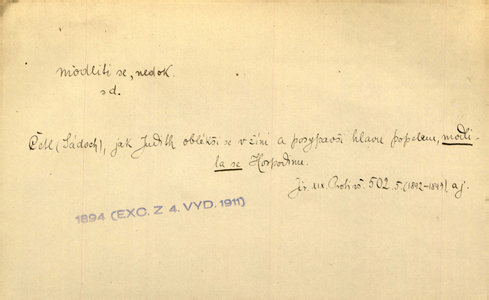 modliti se, nedok.
sd.
Četl (Sádoch), jak Judith oblékši se v žíni a posypavši hlavu popelem, modli-
la se Hospodinu.
Jir. XIX. Proti vš. 502. 5. (1892-1893) aj.
1894 (EXC. Z 4. VYD. 1911)